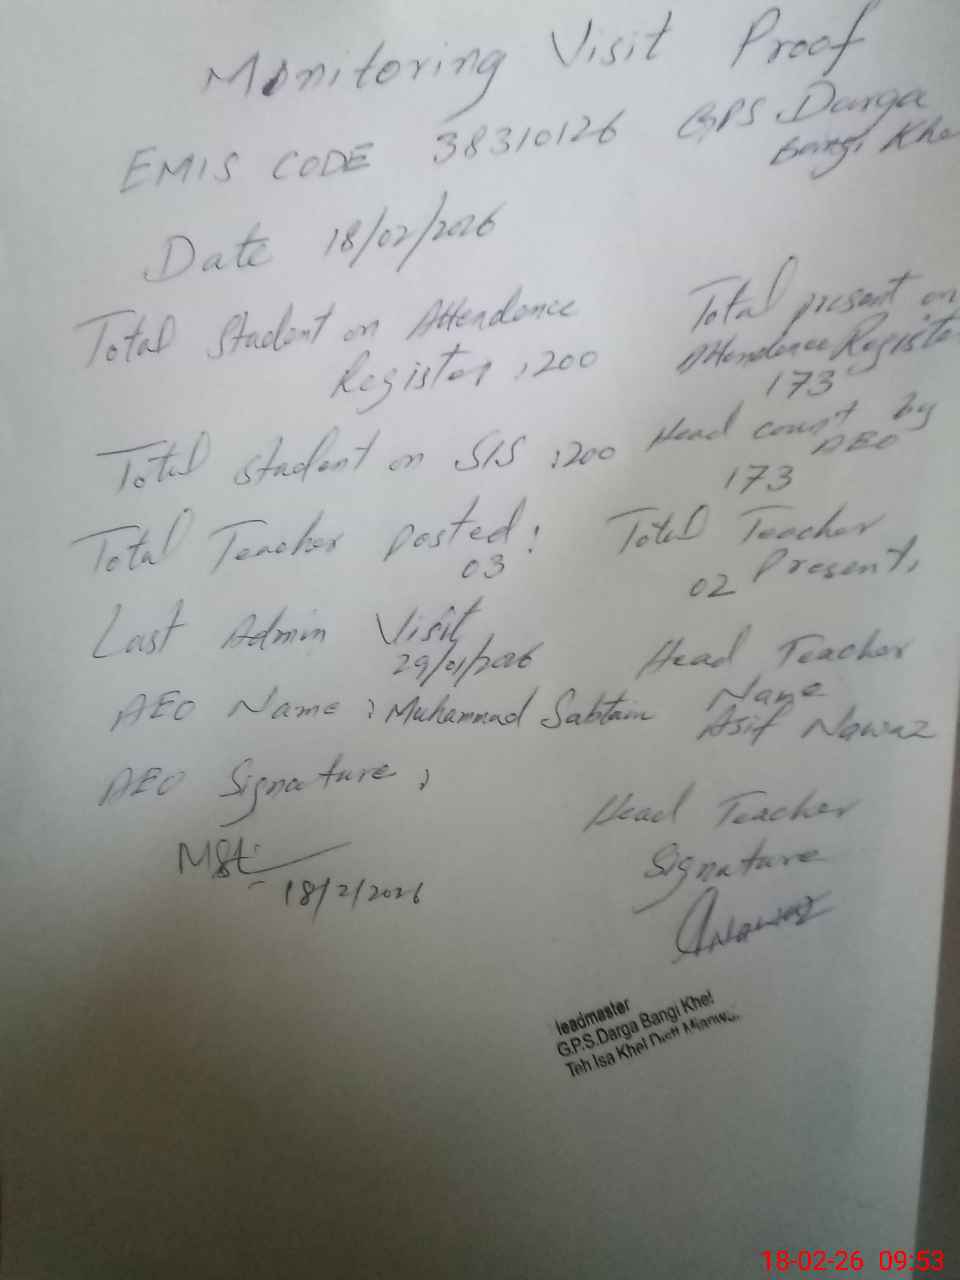 Monitoring Visit Proof
EMIS CODE 38310126 GPS Darga
Bangi Khel
Date 18/02/2026
Total Student on Attendence
Register : 200
Total present on
Attendence Register
173
Total student on SIS : 200
Head count by
AEO
173
Total Teacher posted :
03
Total Teacher
Present,
02
Last Admin Visit
29/01/2026
Head Teacher
Name
Asif Nawaz
AEO Name : Muhammad Sabtain
AEO Signature :
18/2/2026
Head Teacher
Signature
ANawaz
leadmaster
G.P.S.Darga Bangi Khel
Teh.Isa Khel Distt Mianwali
18-02-26 09:53